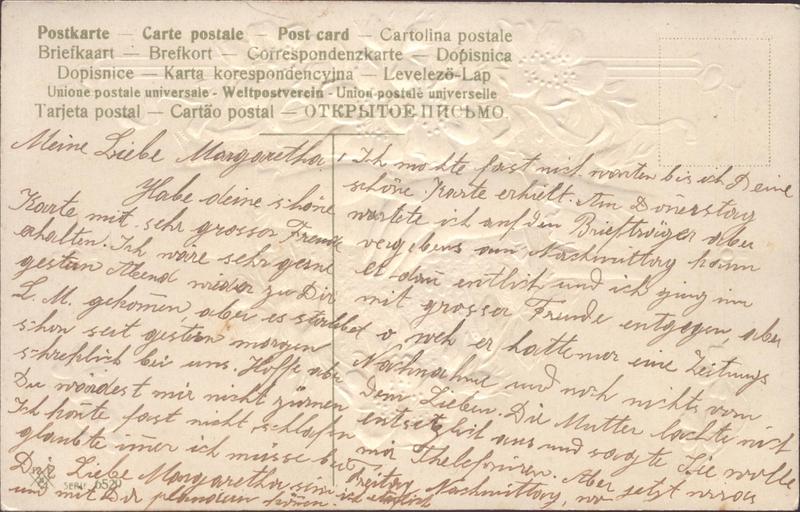 Postkarte — Carte postale — Post card — Cartolina postale
Briefkaart — Brefkort — Correspondenzkarte — Dopisnica
Dopisnice — Karta korespondencyjna — Levelező-Lap
Unione postale universale - Weltpostverein - Union postale universelle
Tarjeta postal — Cartão postal — ОТКРЫТОЕ ПИСЬМО.
Meine Liebe Margaretha!
Habe deine schöne
Karte mit sehr grosser Freude
erhalten. Ich wäre sehr gerne
gestern Abend wieder zu Dir
L. M. gekommen, aber es
schon seit gestern morgen
schreklich bei uns. Hoffe aber
Du würdest mir nicht zürnen
Ich konte fast nicht schlafen
glaubte immer ich müsse bei
Dir Liebe Margaretha sein
und mit Dir plaudern können.
SERIE 6520
Ich mochte fast nich warten bis ich Deine
schöne Karte erhielt. Am Donerstag
wartete ich auf den Briefträger aber
vergebens am Nachmittag kamm
er dan entlich und ich ging im
mit grosser Freude entgegen, aber
o weh er hatte nur eine Zeitungs
Nachnahme und noch nichts vom
dem Lieben. Die Mutter lachte mich
entsetzlich aus und sagte Sie wolle
mir Thelefoniren. Aber jetzt
Freitag Nachmittag,